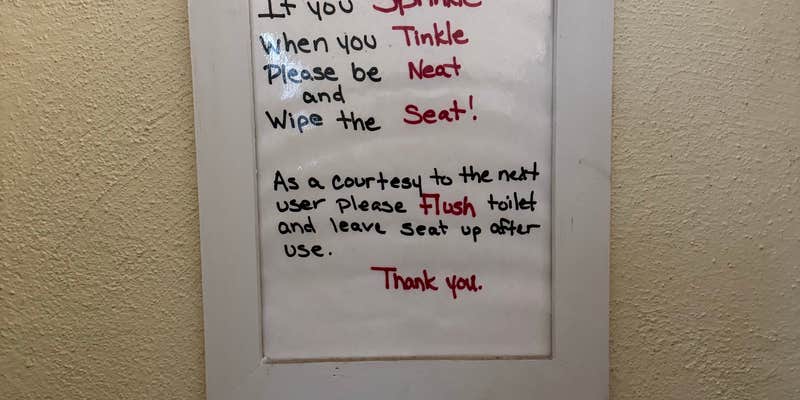 If you Sprinkle
When you Tinkle
Please be Neat
and
Wipe the Seat!
As a courtesy to the next
user please flush toilet
and leave seat up after
use.
Thank you.